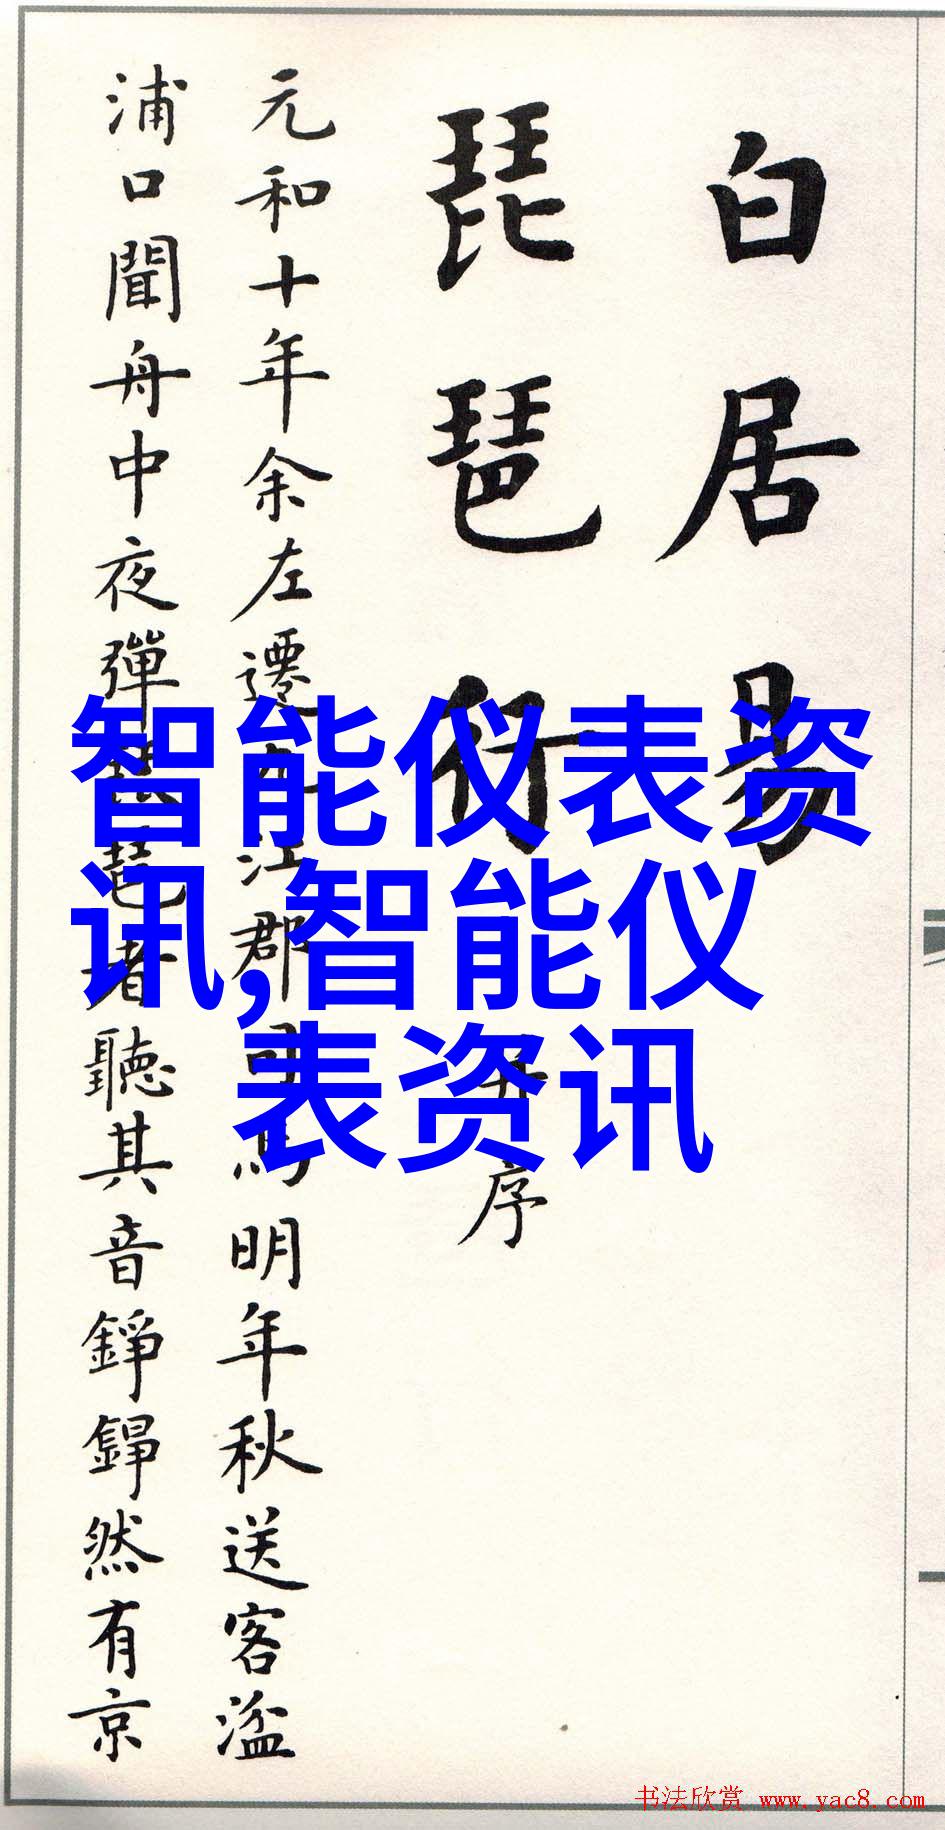 白居易
琵琶行 并序
元和十年余左遷九江郡司馬明年秋送客湓
浦口聞舟中夜彈琵琶者聽其音錚錚然有京
智能仪表资
讯,智能仪
表资讯
书法欣赏 www.yac8.com